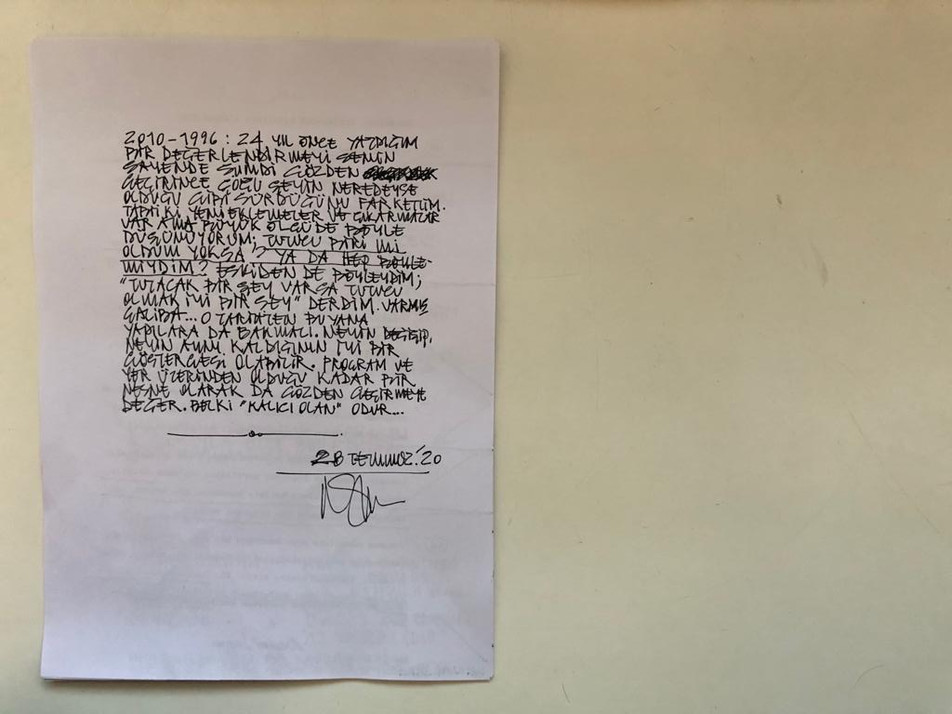 2010-1996: 24 YIL ÖNCE YAZDIĞIM
BİR DEĞERLENDİRMEYİ SENİN
SAYENDE ŞİMDİ GÖZDEN
GEÇİRİNCE ÇOĞU ŞEYİN NEREDEYSE
OLDUĞU GİBİ SÜRDÜĞÜNÜ FARKETTİM.
TABİİ Kİ YENİ EKLEMELER VE ÇIKARMALAR
VAR AMA BÜYÜK ÖLÇÜDE BÖYLE
DÜŞÜNÜYORUM; TUTUCU BİRİ Mİ
OLDUM YOKSA? YA DA HEP BÖYLE-
MİYDİM? ESKİDEN DE BÖYLEYDİM;
"TUTACAK BİR ŞEY VARSA TUTUCU
OLMAK İYİ BİR ŞEY" DERDİM. VARMIŞ
GALİBA... O TARİHTEN BU YANA
YAPILARA DA BAKMALI. NEYİN DEĞİŞİP,
NEYİN AYNI KALDIĞININ İYİ BİR
GÖSTERGESİ OLABİLİR. PROGRAM VE
YER ÜZERİNDEN OLDUĞU KADAR BİR
NESNE OLARAK DA GÖZDEN GEÇİRMEYE
DEĞER. BELKİ "KALICI OLAN" ODUR...
28 TEMMUZ.'20